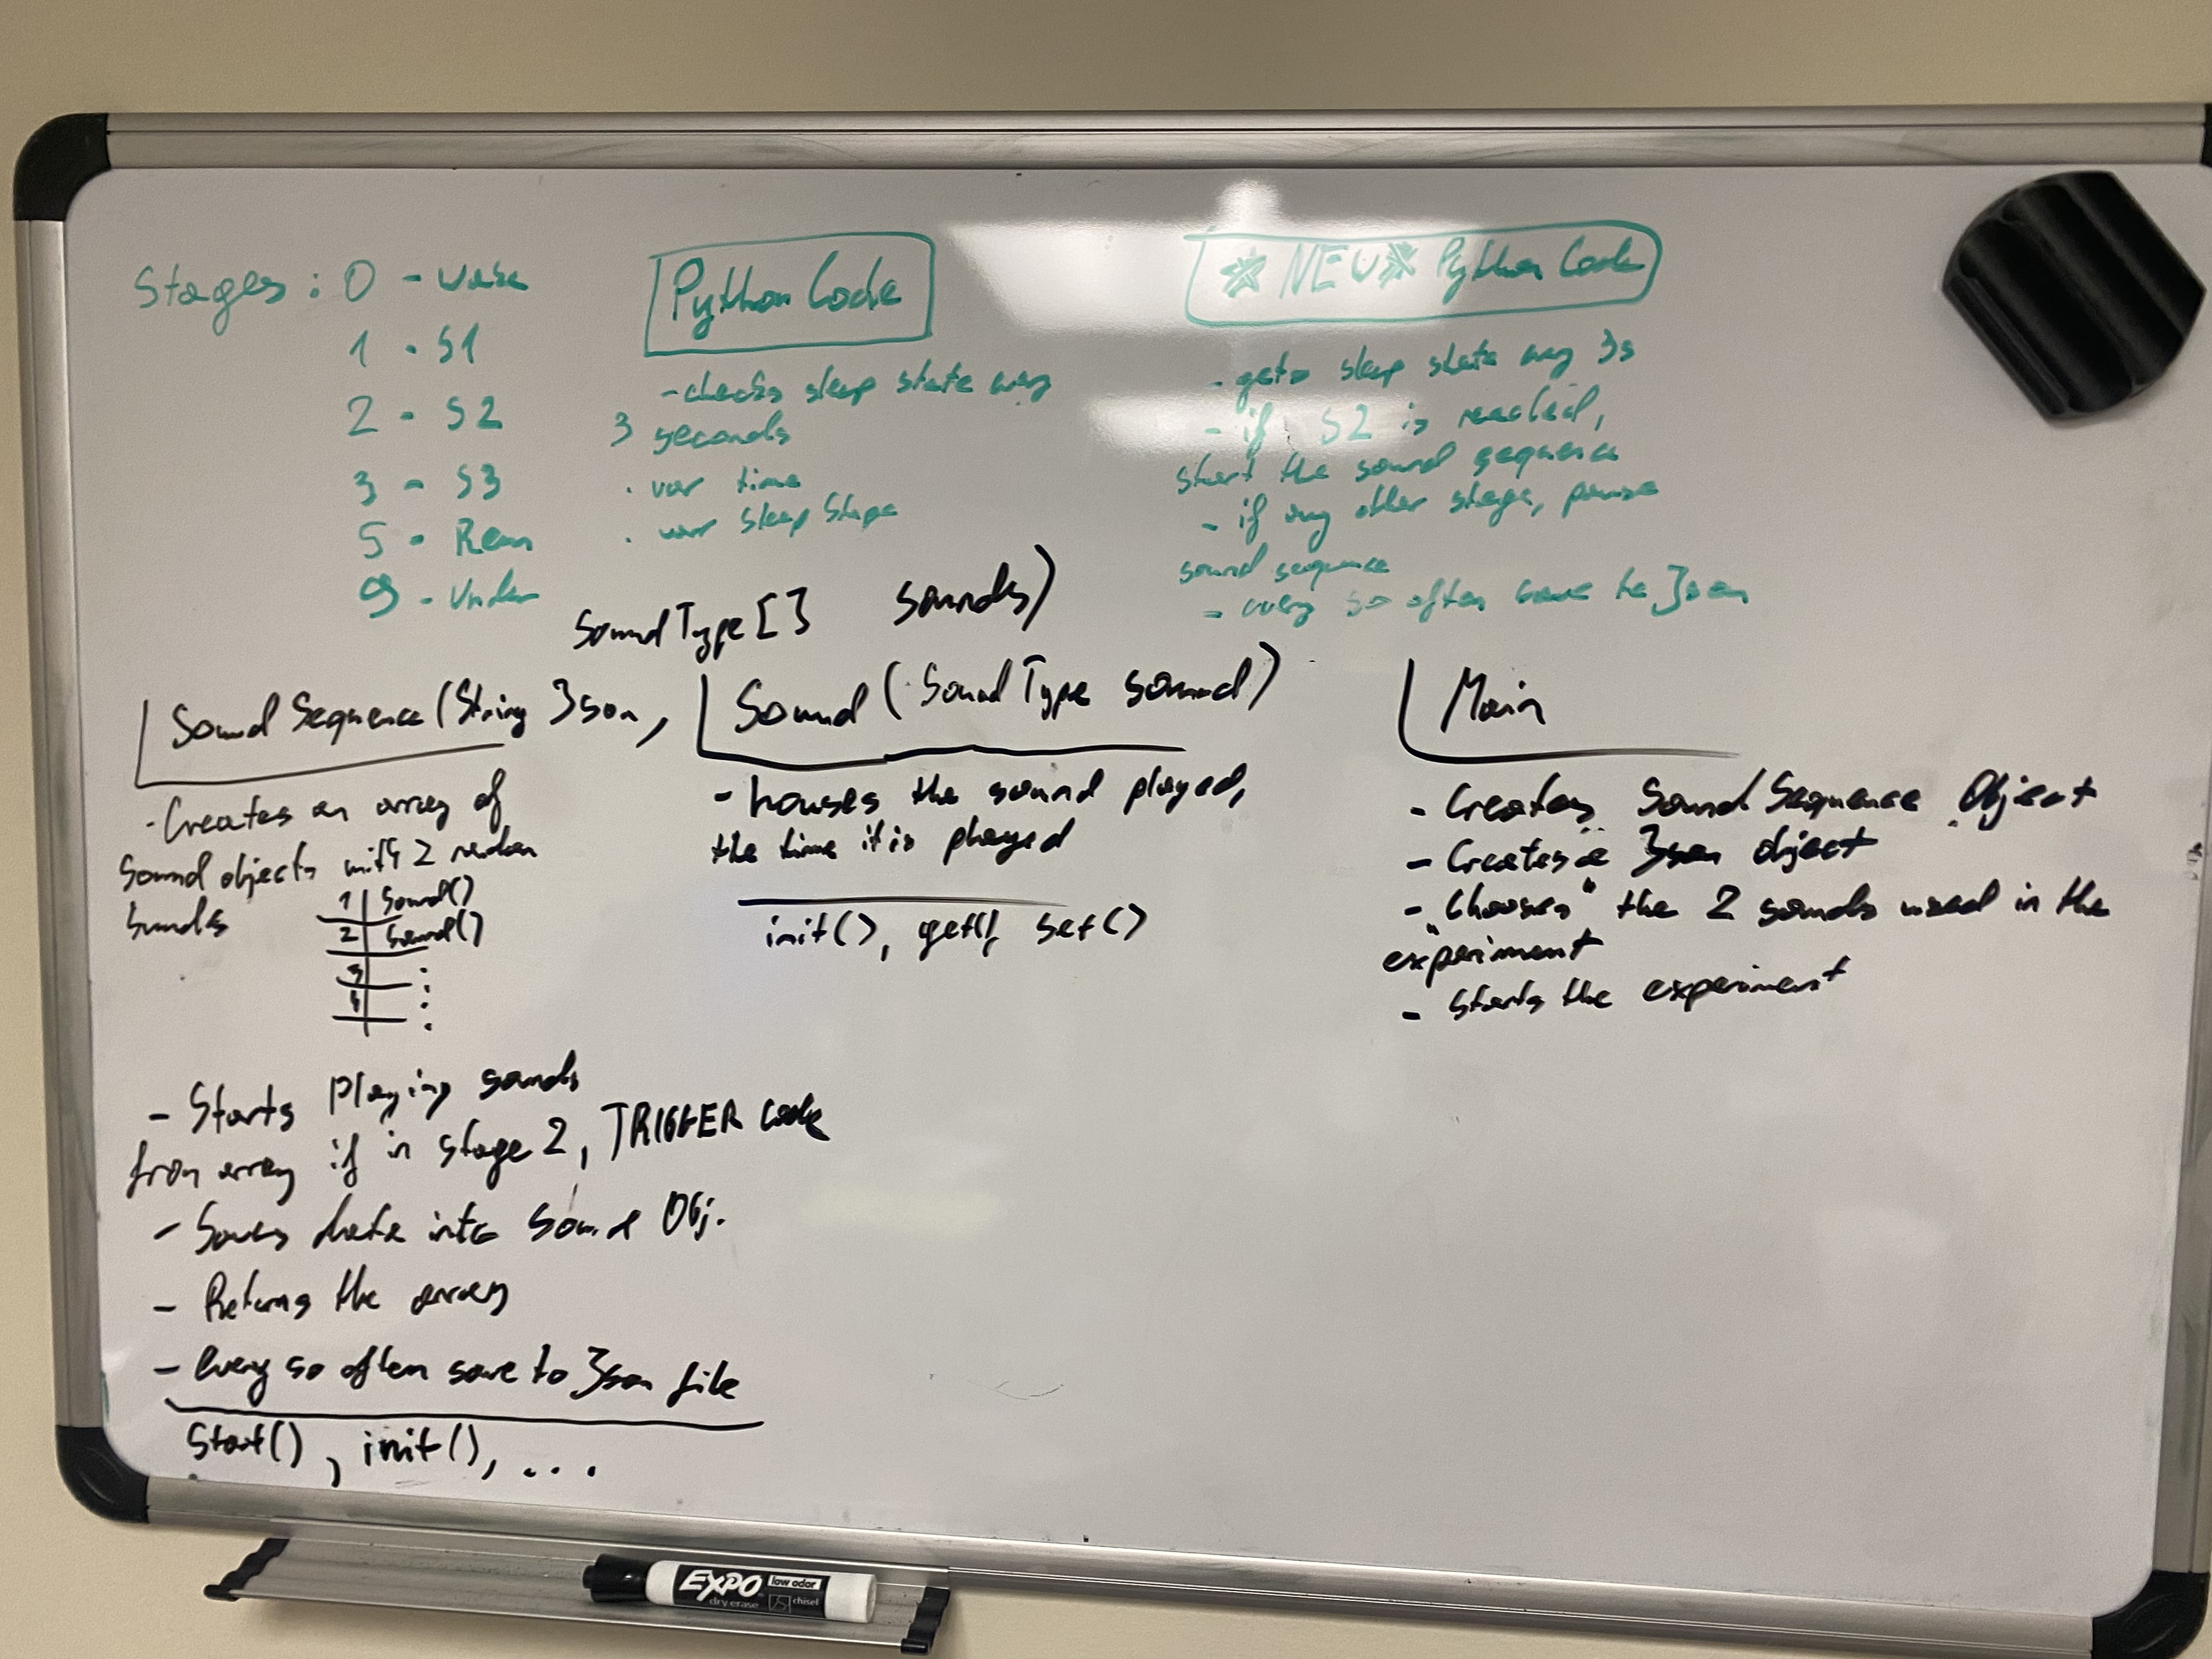 Stages : 0 - wake
1 - S1
2 - S2
3 - S3
5 - Rem
9 - Unden
Python Code
- checks sleep state every
3 seconds
. var time
. var sleep Stage
* NEW * Python Code
- gets sleep state every 3s
- if S2 is reached,
start the sound sequence
- if any other stage, pause
sound sequence
- every so often save to Json
SoundType[] sounds)
Sound Sequence (String Json,
- Creates an array of
sound objects with 2 random
sounds
1 Sound()
2 Sound()
3 :
4 :
- Starts playing sounds
from array if in stage 2, TRIGGER Code
- Saves data into Sound Obj.
- Returns the array
- Every so often save to Json file
Start(), init(), ...
Sound (SoundType sound)
- houses the sound played,
the time it is played
init(), get(), set()
Main
- Creates SoundSequence Object
- Creates a Json object
- "Chooses" the 2 sounds used in the
experiment
- Starts the experiment
EXPO low odor
dry erase chisel